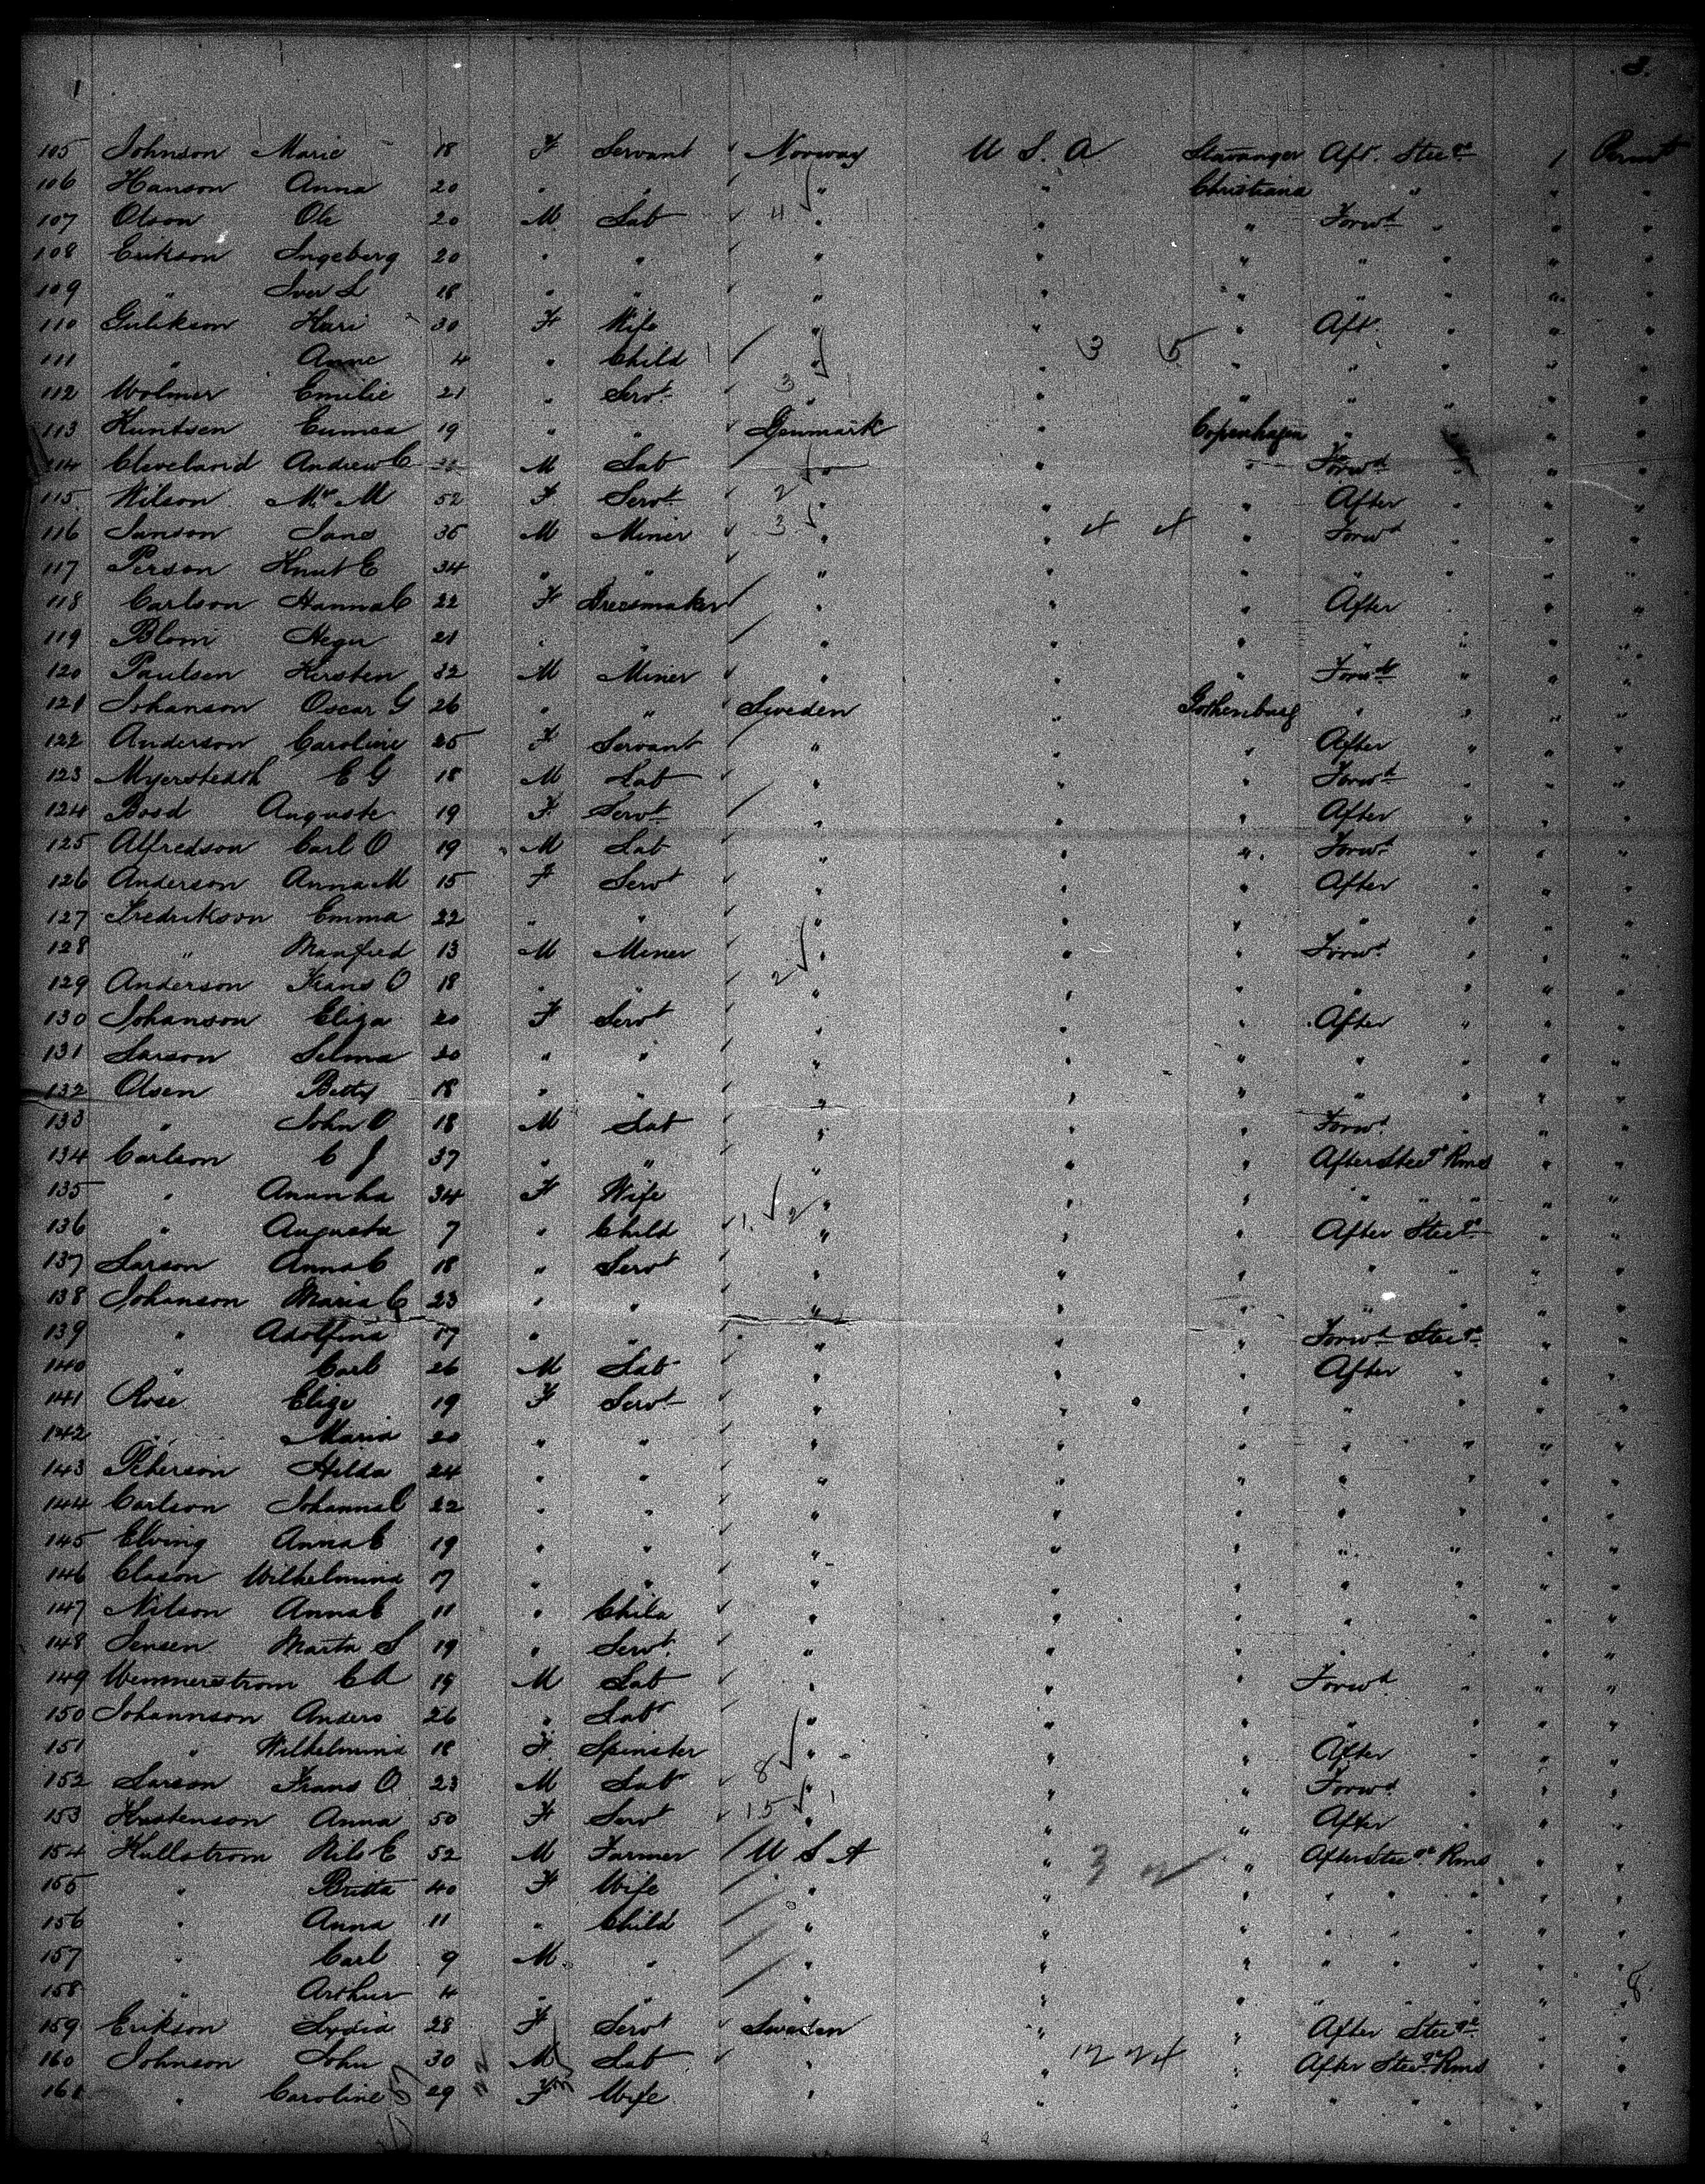 3.
105 Johnson Marie 18 F Servant Norway U S. A Stavanger Aft. Steege 1 Permt
106 Hanson Anna 20 " " " " Christiana " " "
107 Olson Ole 20 M Lab " " " Forwd " " "
108 Erikson Ingeberg 20 " " " " " " " " "
109 " Iver L 18 " " " " " " " " "
110 Gulikson Kari 30 F Wife " " " Aft. " " "
111 " Anne 4 " Child " " " " " " "
112 Wolmer Emilie 21 " Servt " " " " " " "
113 Kuntsen 19 " " Denmark " Copenhagen " " " "
114 Cleveland Andrew C M Lab " " " Forwd " " "
115 Wilson M 52 F Servt " " " After " " "
116 Janson Jans 35 M Miner " " " Forwd " " "
117 Person Knut E 34 " " " " " " " " "
118 Carlson Hanna C 22 F Dressmaker " " " After " " "
119 Blom 21 " " " " " " " " "
120 Paulsen Kersten 32 M Miner " " " Forwd " " "
121 Johanson Oscar G 26 " " Sweden " Gothenburg " " " "
122 Anderson Caroline 25 F Servant " " " After " " "
123 E G 18 M Lab " " " Forwd " " "
124 Auguste 19 F Servt " " " After " " "
125 Alfredson Carl O 19 M Lab " " " Forwd " " "
126 Anderson Anna M 15 F Servt " " " After " " "
127 Fredrikson Emma 22 " " " " " " " " "
128 " Manfred 13 M Miner " " " Forwd " " "
129 Anderson Frans O 18 " " " " " " " " "
130 Johanson Eliza 20 F Servt " " " After " " "
131 Larson Selma 20 " " " " " " " " "
132 Olsen Betty 18 " " " " " " " " "
133 " John O 18 M Lab " " " Forwd " " "
134 Carlson C J 37 " " " " " After Steege Rms " "
135 " 34 F Wife " " " " " " " "
136 " Augusta 7 " Child " " " After Steege " "
137 Larson Anna C 18 " Servt " " " " " " "
138 Johanson Maria C 23 " " " " " " " " "
139 " Adolfina 17 " " " " " Forwd Steege " "
140 " Carl 26 M Lab " " " After " " "
141 Rose Elize 19 F Servt " " " " " " "
142 " Maria 20 " " " " " " " " "
143 Peterson Hilda 24 " " " " " " " " "
144 Carlson Johanna C 22 " " " " " " " " "
145 Elving Anna C 19 " " " " " " " " "
146 Clason Wilhelmina 17 " " " " " " " " "
147 Nilson Anna C 11 " Child " " " " " " "
148 Jensen Marta S 19 " Servt " " " " " " "
149 Wennerstrom C A 19 M Lab " " " Forwd " " "
150 Johannson Anders 26 " Labr " " " " " " "
151 " Wilhelmina 18 F Spinster " " " After " " "
152 Larson Frans O 23 M Labr " " " Forwd " " "
153 Kristenson Anna 50 F Servt " " " After " " "
154 Hullstrom Nils E 52 M Farmer U S A " " After Steege Rms " "
155 " Britta 40 F Wife " " " " " " " "
156 " Anna 11 " Child " " " " " " " "
157 " Carl 9 M " " " " " " " " "
158 " Arthur 4 " " " " " " " " " "
159 Erikson Lydia 28 F Servt Sweden " " After Steege " "
160 Johnson John 30 M Lab " " " After Steege Rms " "
161 " Caroline 29 F Wife " " " " " " " "